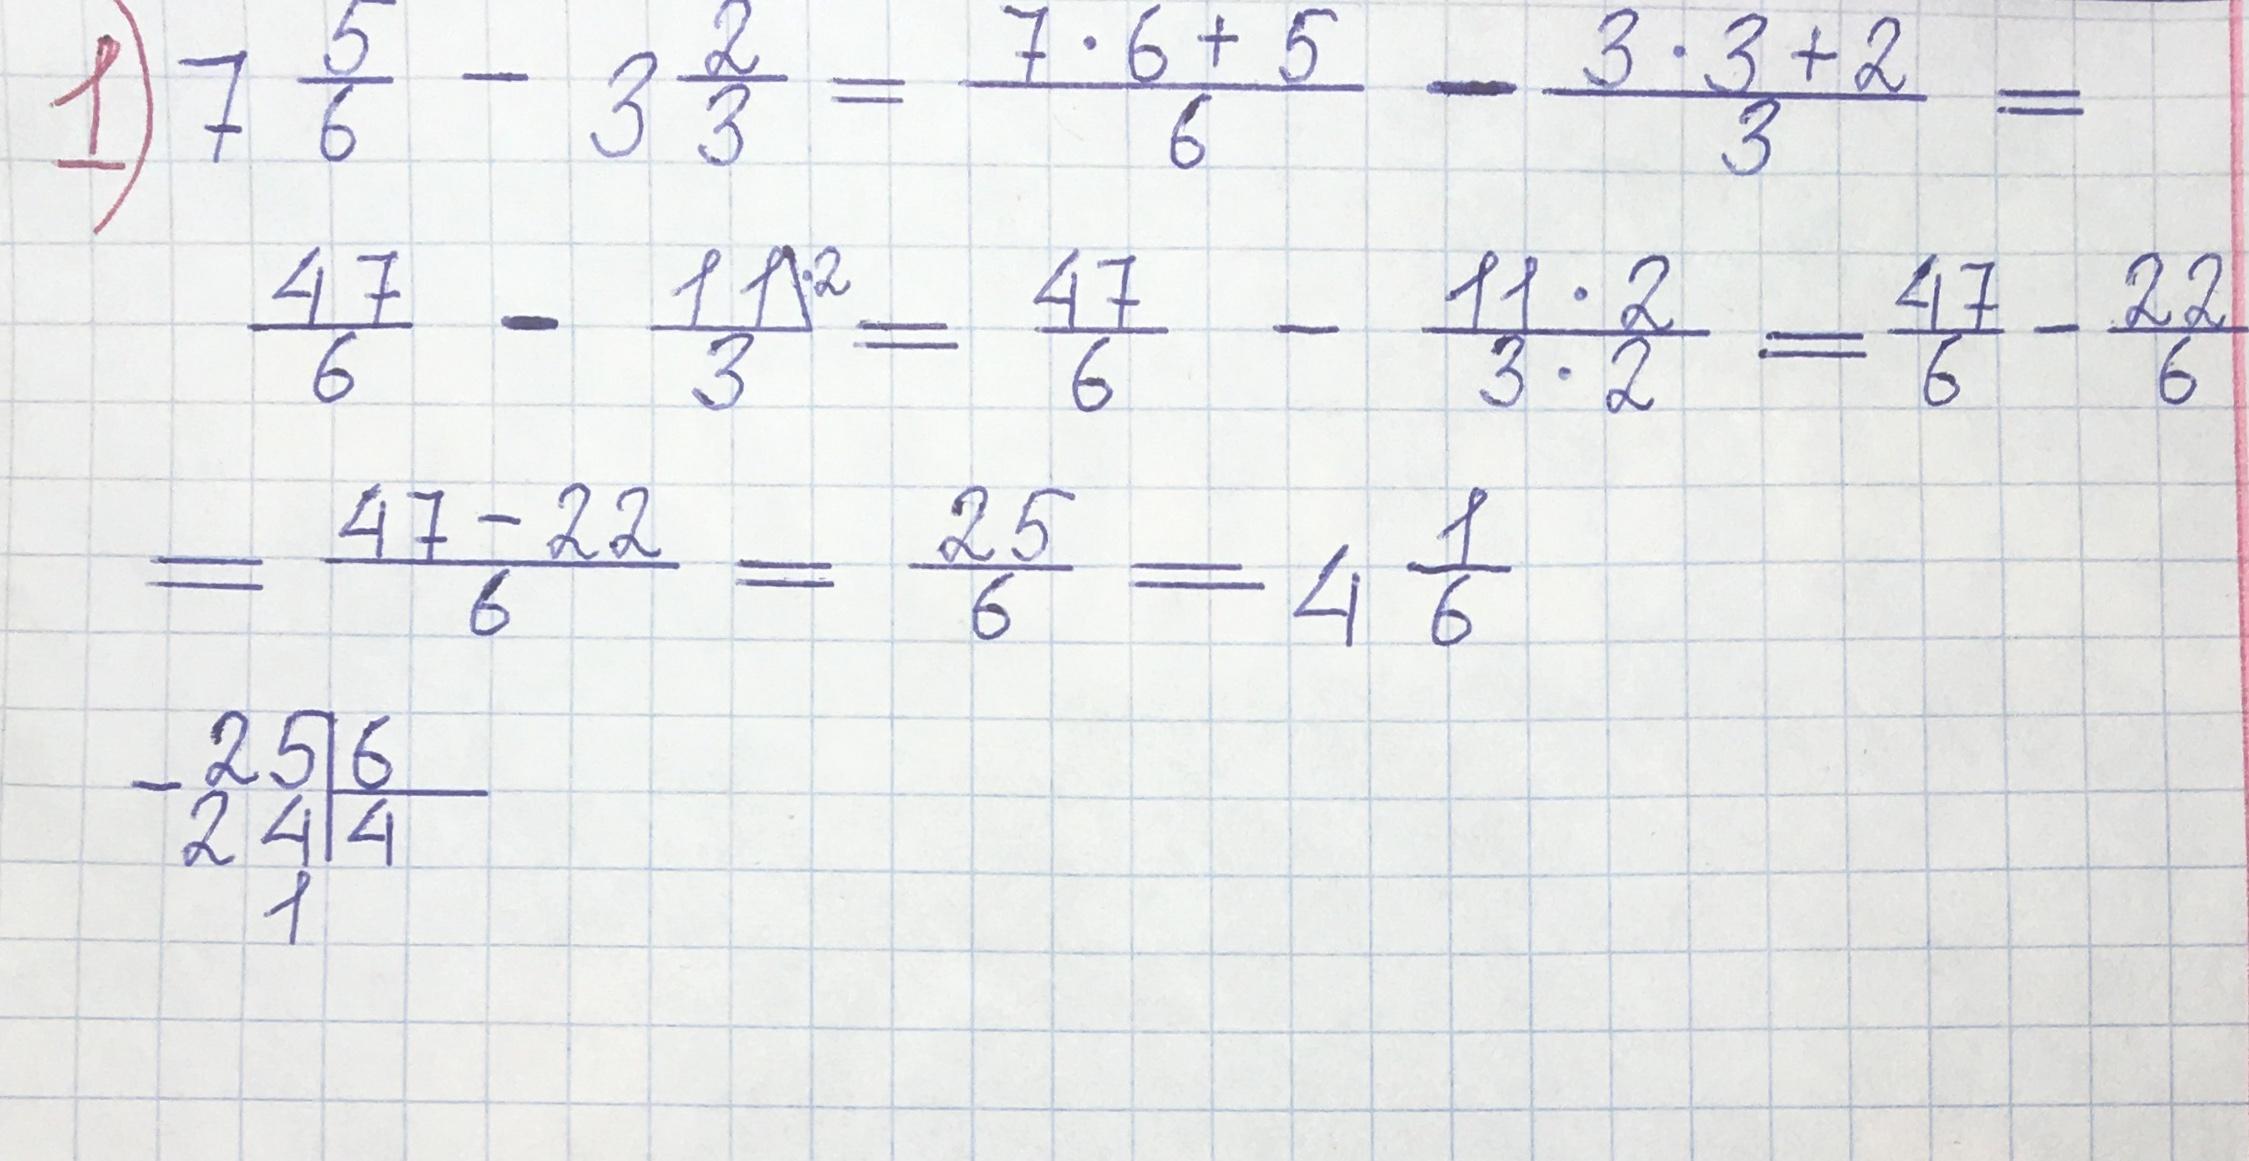 1) 7 5/6 - 3 2/3 = (7 · 6 + 5)/6 - (3 · 3 + 2)/3 =
47/6 - 11\·2/3 = 47/6 - (11 · 2)/(3 · 2) = 47/6 - 22/6
= (47 - 22)/6 = 25/6 = 4 1/6
- 25 | 6
24 | 4
1